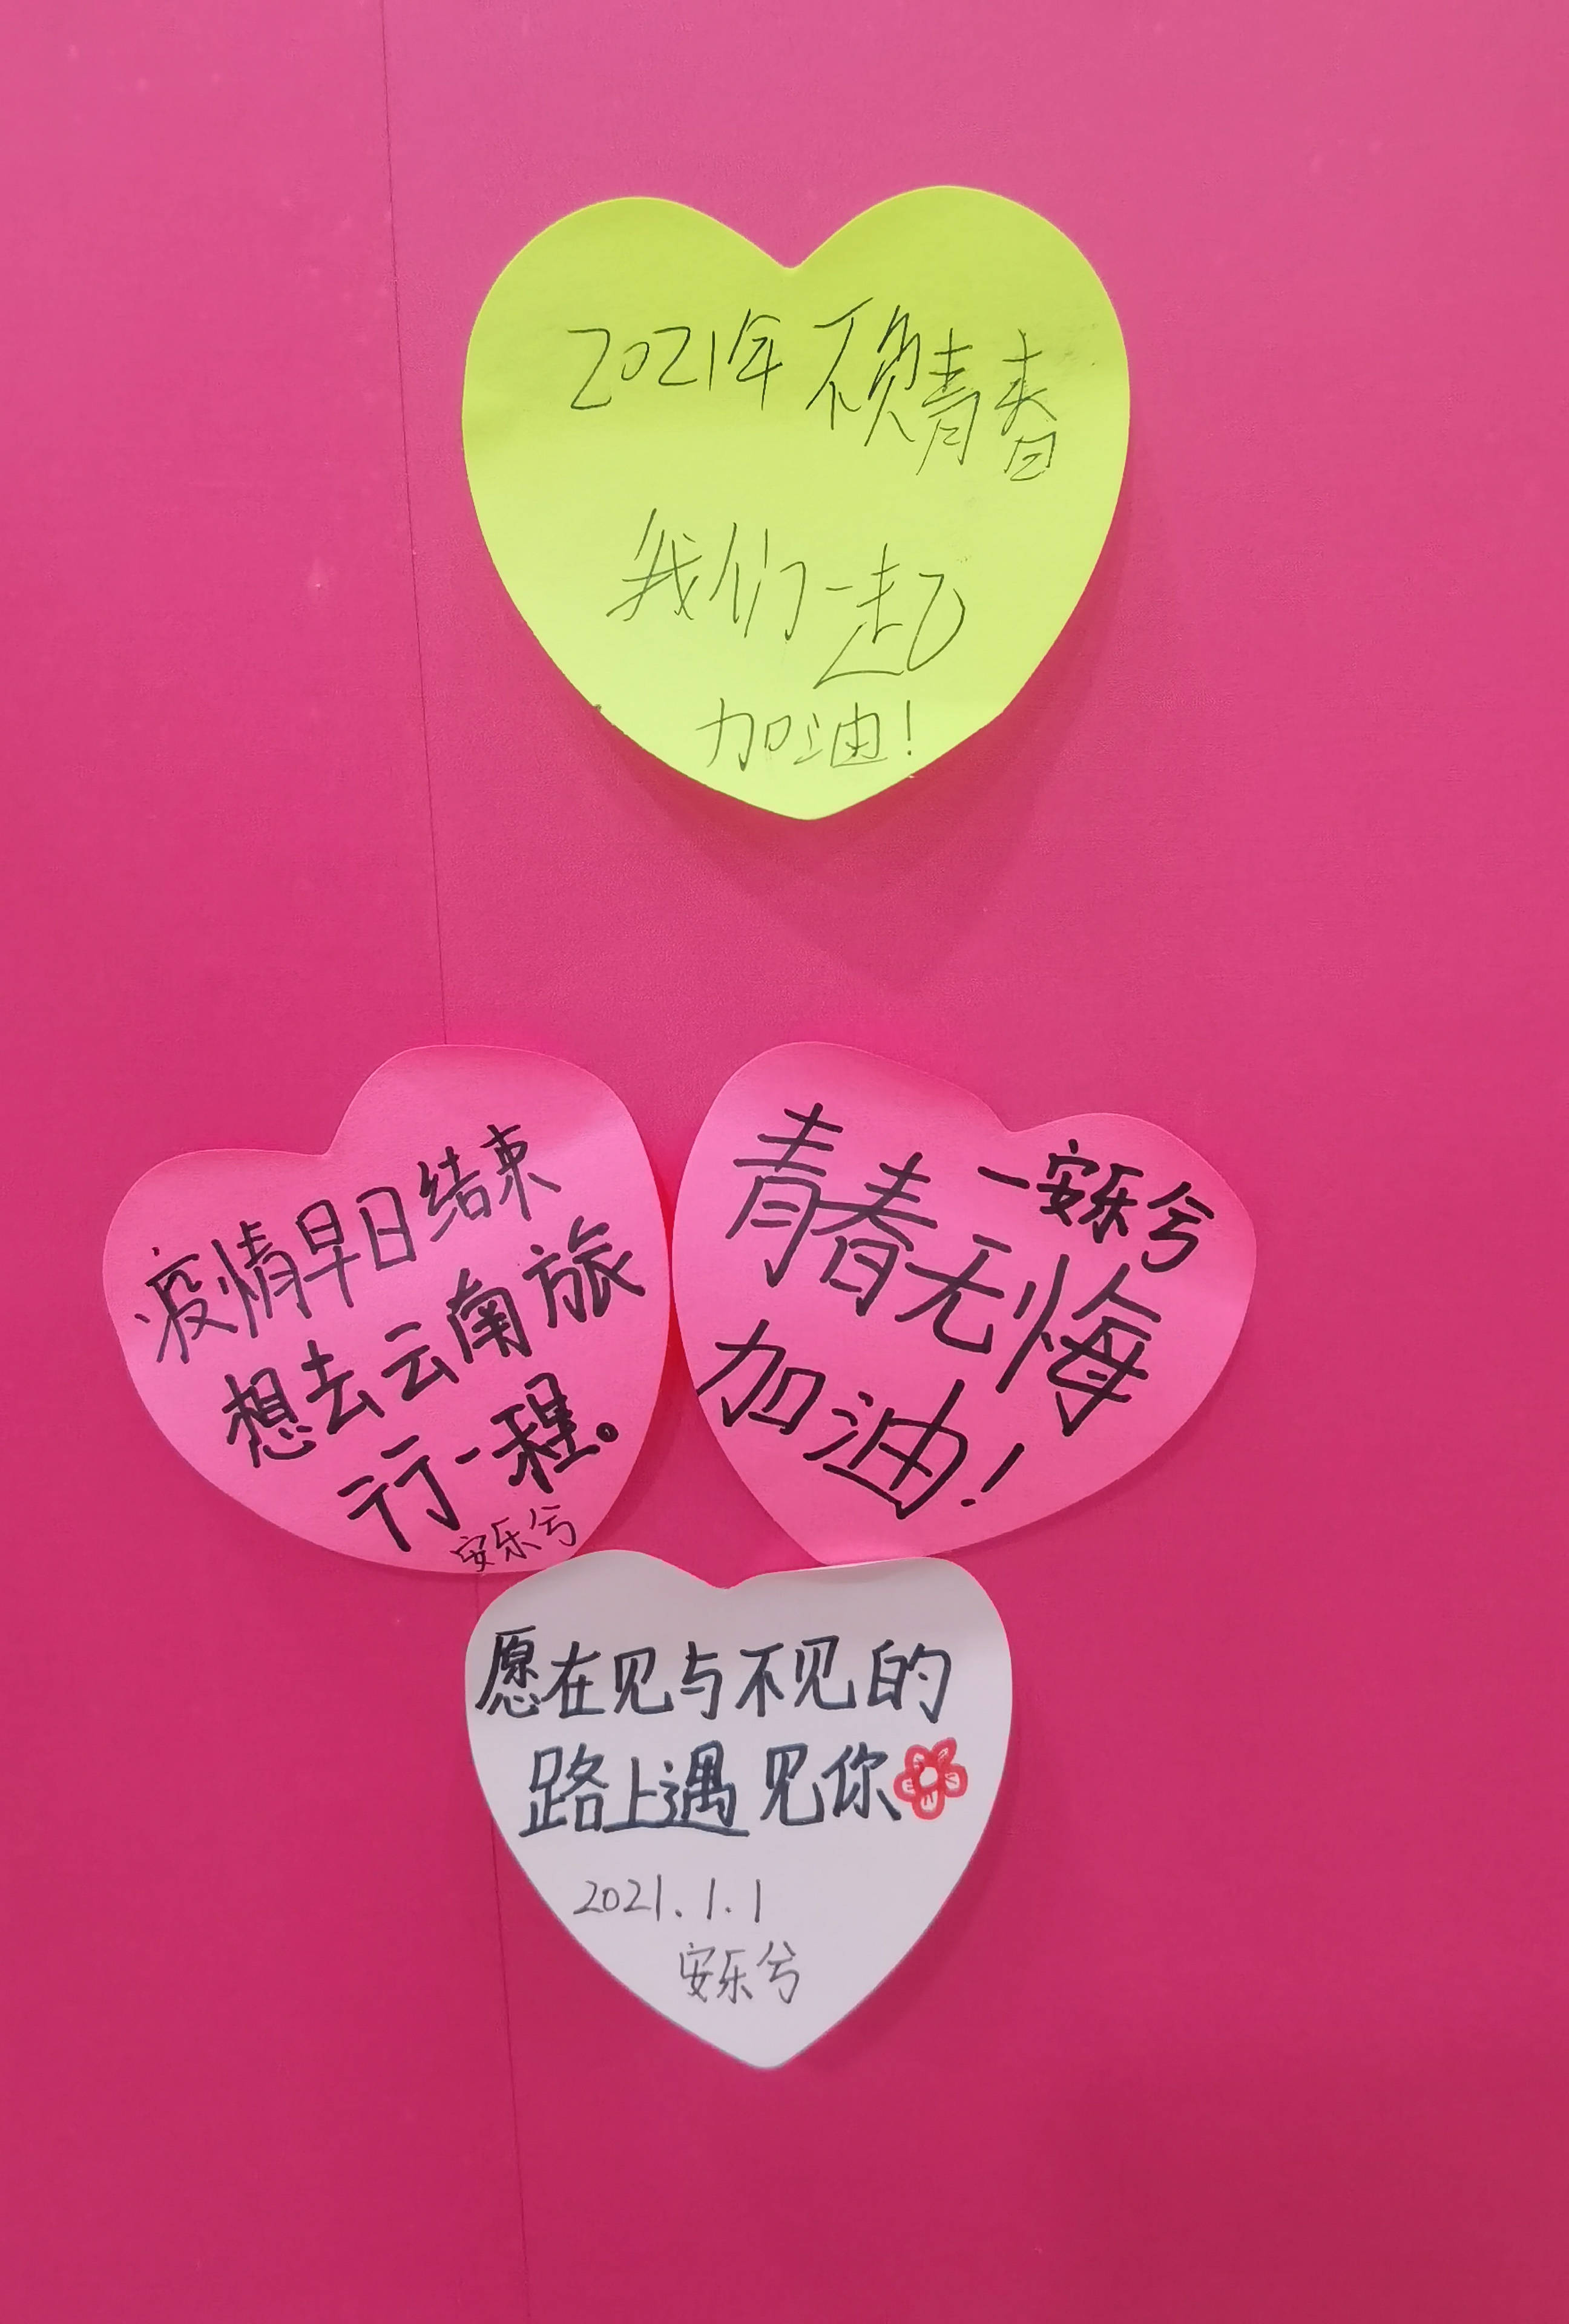 2021年 不负青春
我们一起
加油!
疫情早日结束
想去云南旅
行一程。
安乐兮
一安乐兮
青春无悔
加油!
愿在见与不见的
路上遇见你
2021.1.1
安乐兮